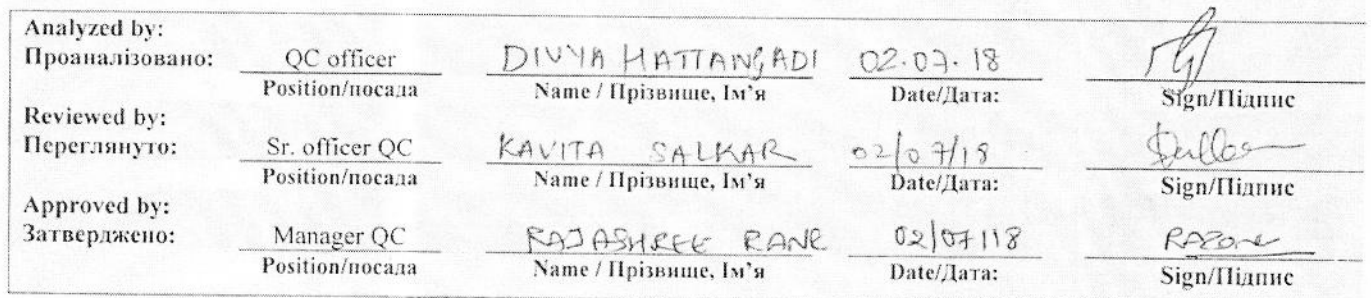 Analyzed by:
Проаналізовано: QC officer DIVYA HATTANGADI 02.07.18
Position/посада Name / Прізвище, Ім'я Date/Дата: Sign/Підпис
Reviewed by:
Переглянуто: Sr. officer QC KAVITA SALKAR 02/07/18
Position/посада Name / Прізвище, Ім'я Date/Дата: Sign/Підпис
Approved by:
Затверджено: Manager QC RAJASHREE RANE 02/07/18
Position/посада Name / Прізвище, Ім'я Date/Дата: Sign/Підпис